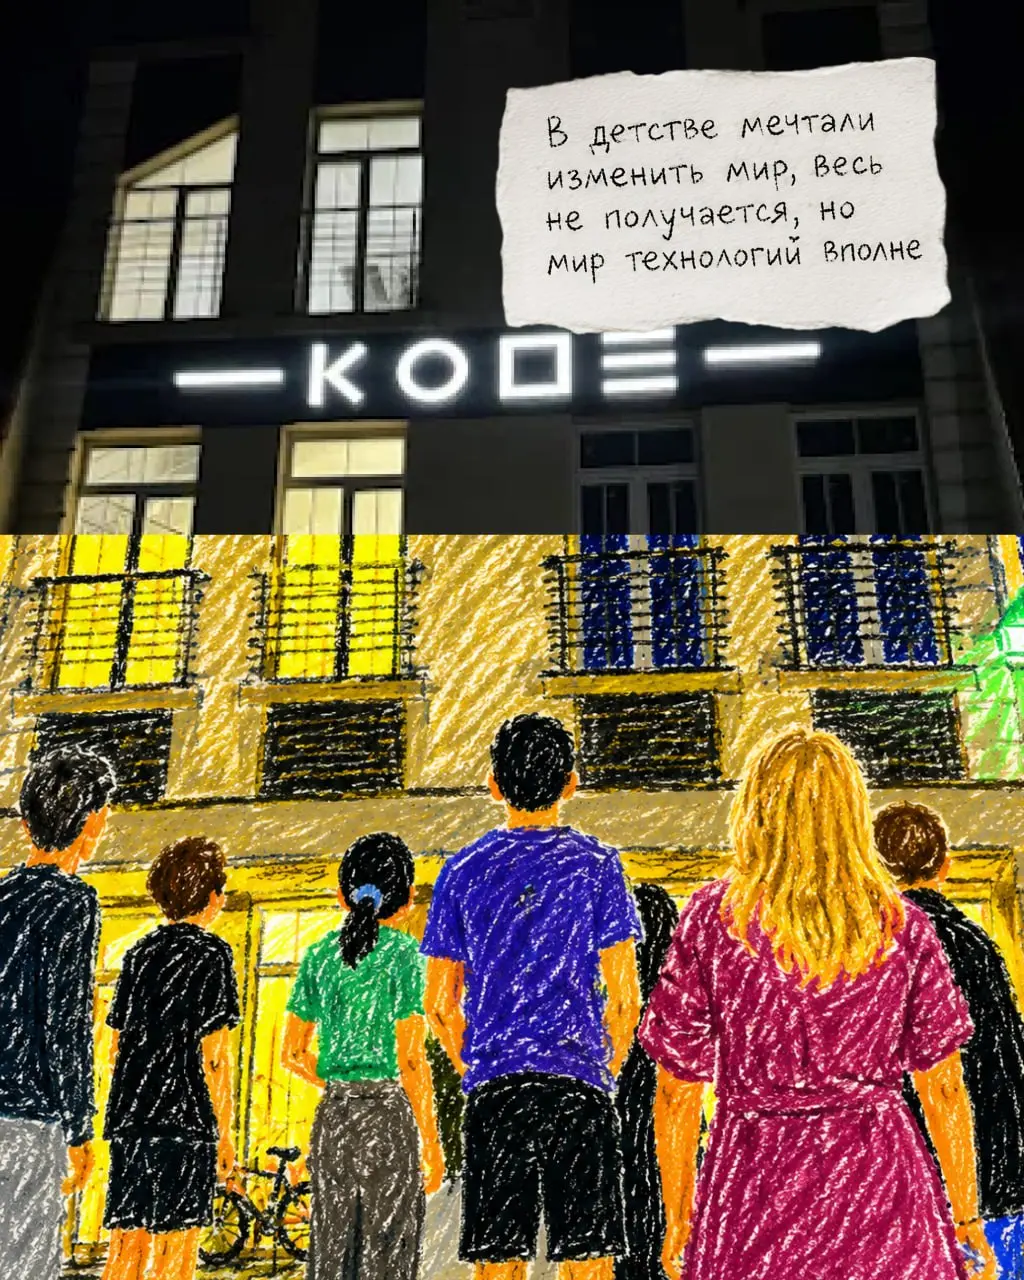 В детстве мечтали
изменить мир, весь
не получается, но
мир технологий вполне
KODE